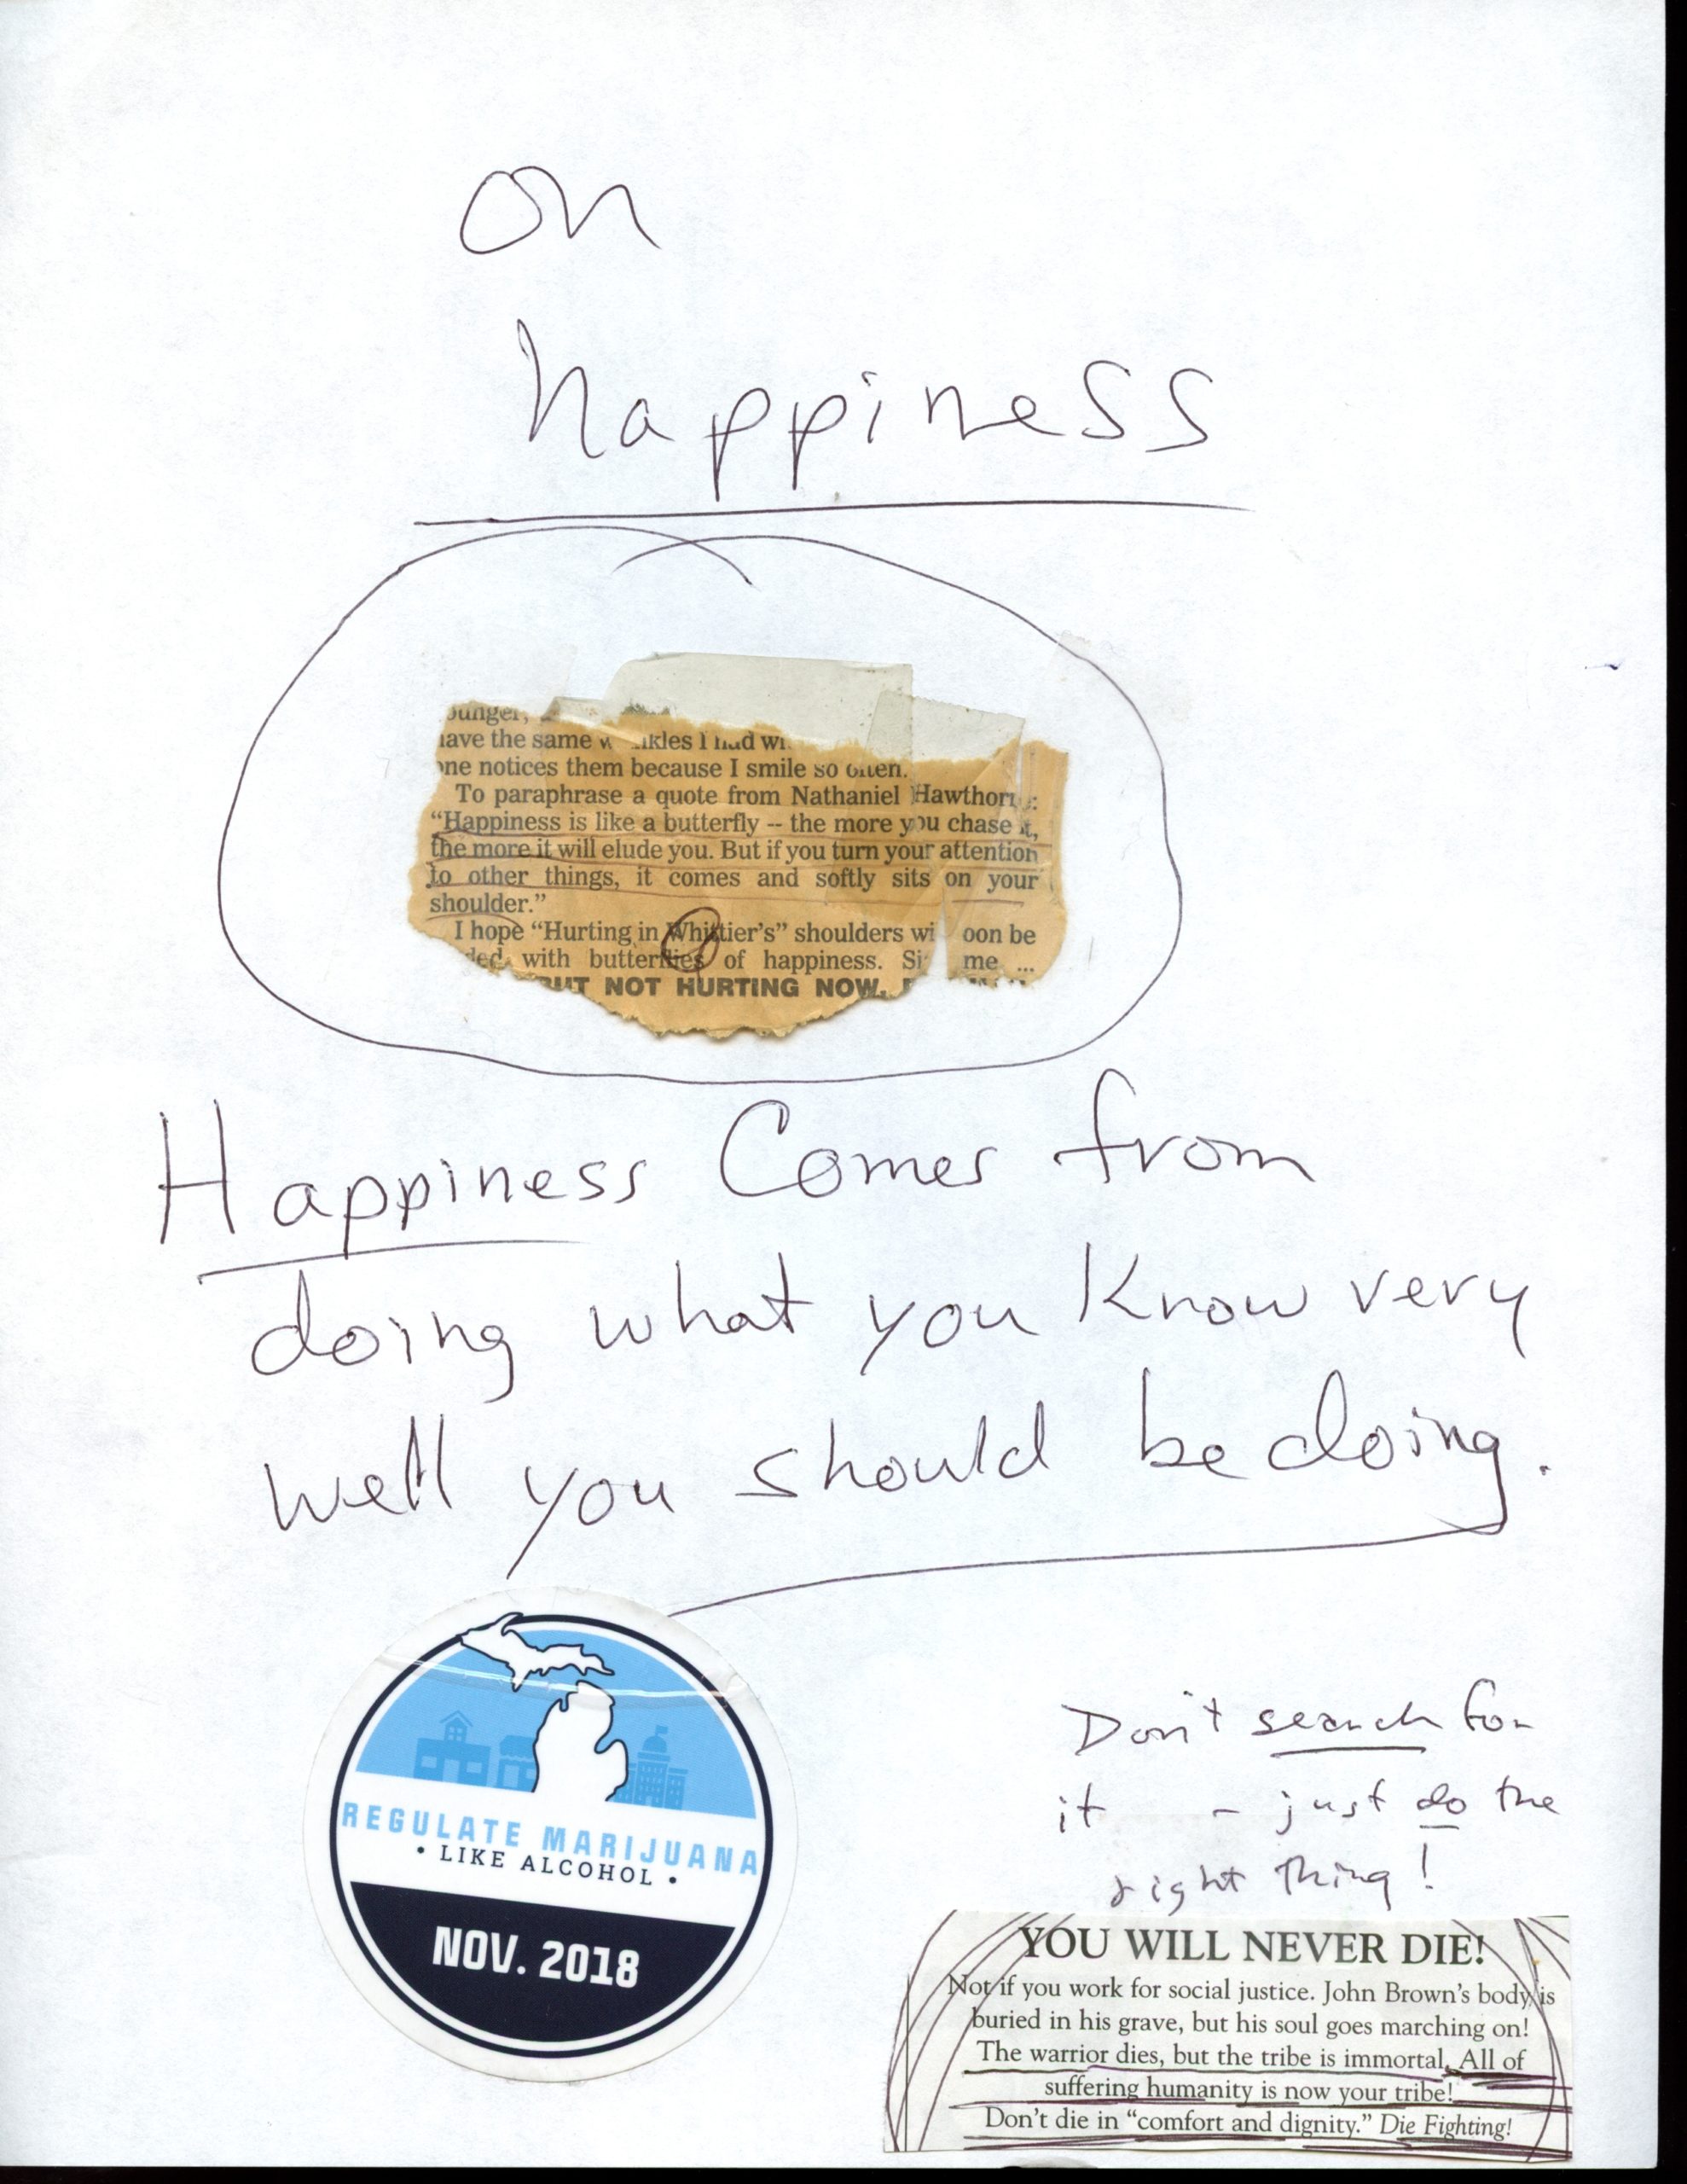 on
happiness
ounger,
have the same w  nkles I had wh
one notices them because I smile so often.
To paraphrase a quote from Nathaniel Hawthorne:
“Happiness is like a butterfly -- the more you chase it,
the more it will elude you. But if you turn your attention
to other things, it comes and softly sits on your
shoulder.”
I hope “Hurting in Whittier's” shoulders wi  oon be
ded with butterflies of happiness. Si  me ...
BUT NOT HURTING NOW,
Happiness Comes from
doing what you Know very
well you should be doing.
REGULATE MARIJUANA
• LIKE ALCOHOL •
NOV. 2018
Don't search for
it - just do the
right thing!
YOU WILL NEVER DIE!
Not if you work for social justice. John Brown's body is
buried in his grave, but his soul goes marching on!
The warrior dies, but the tribe is immortal. All of
suffering humanity is now your tribe!
Don't die in “comfort and dignity.” Die Fighting!